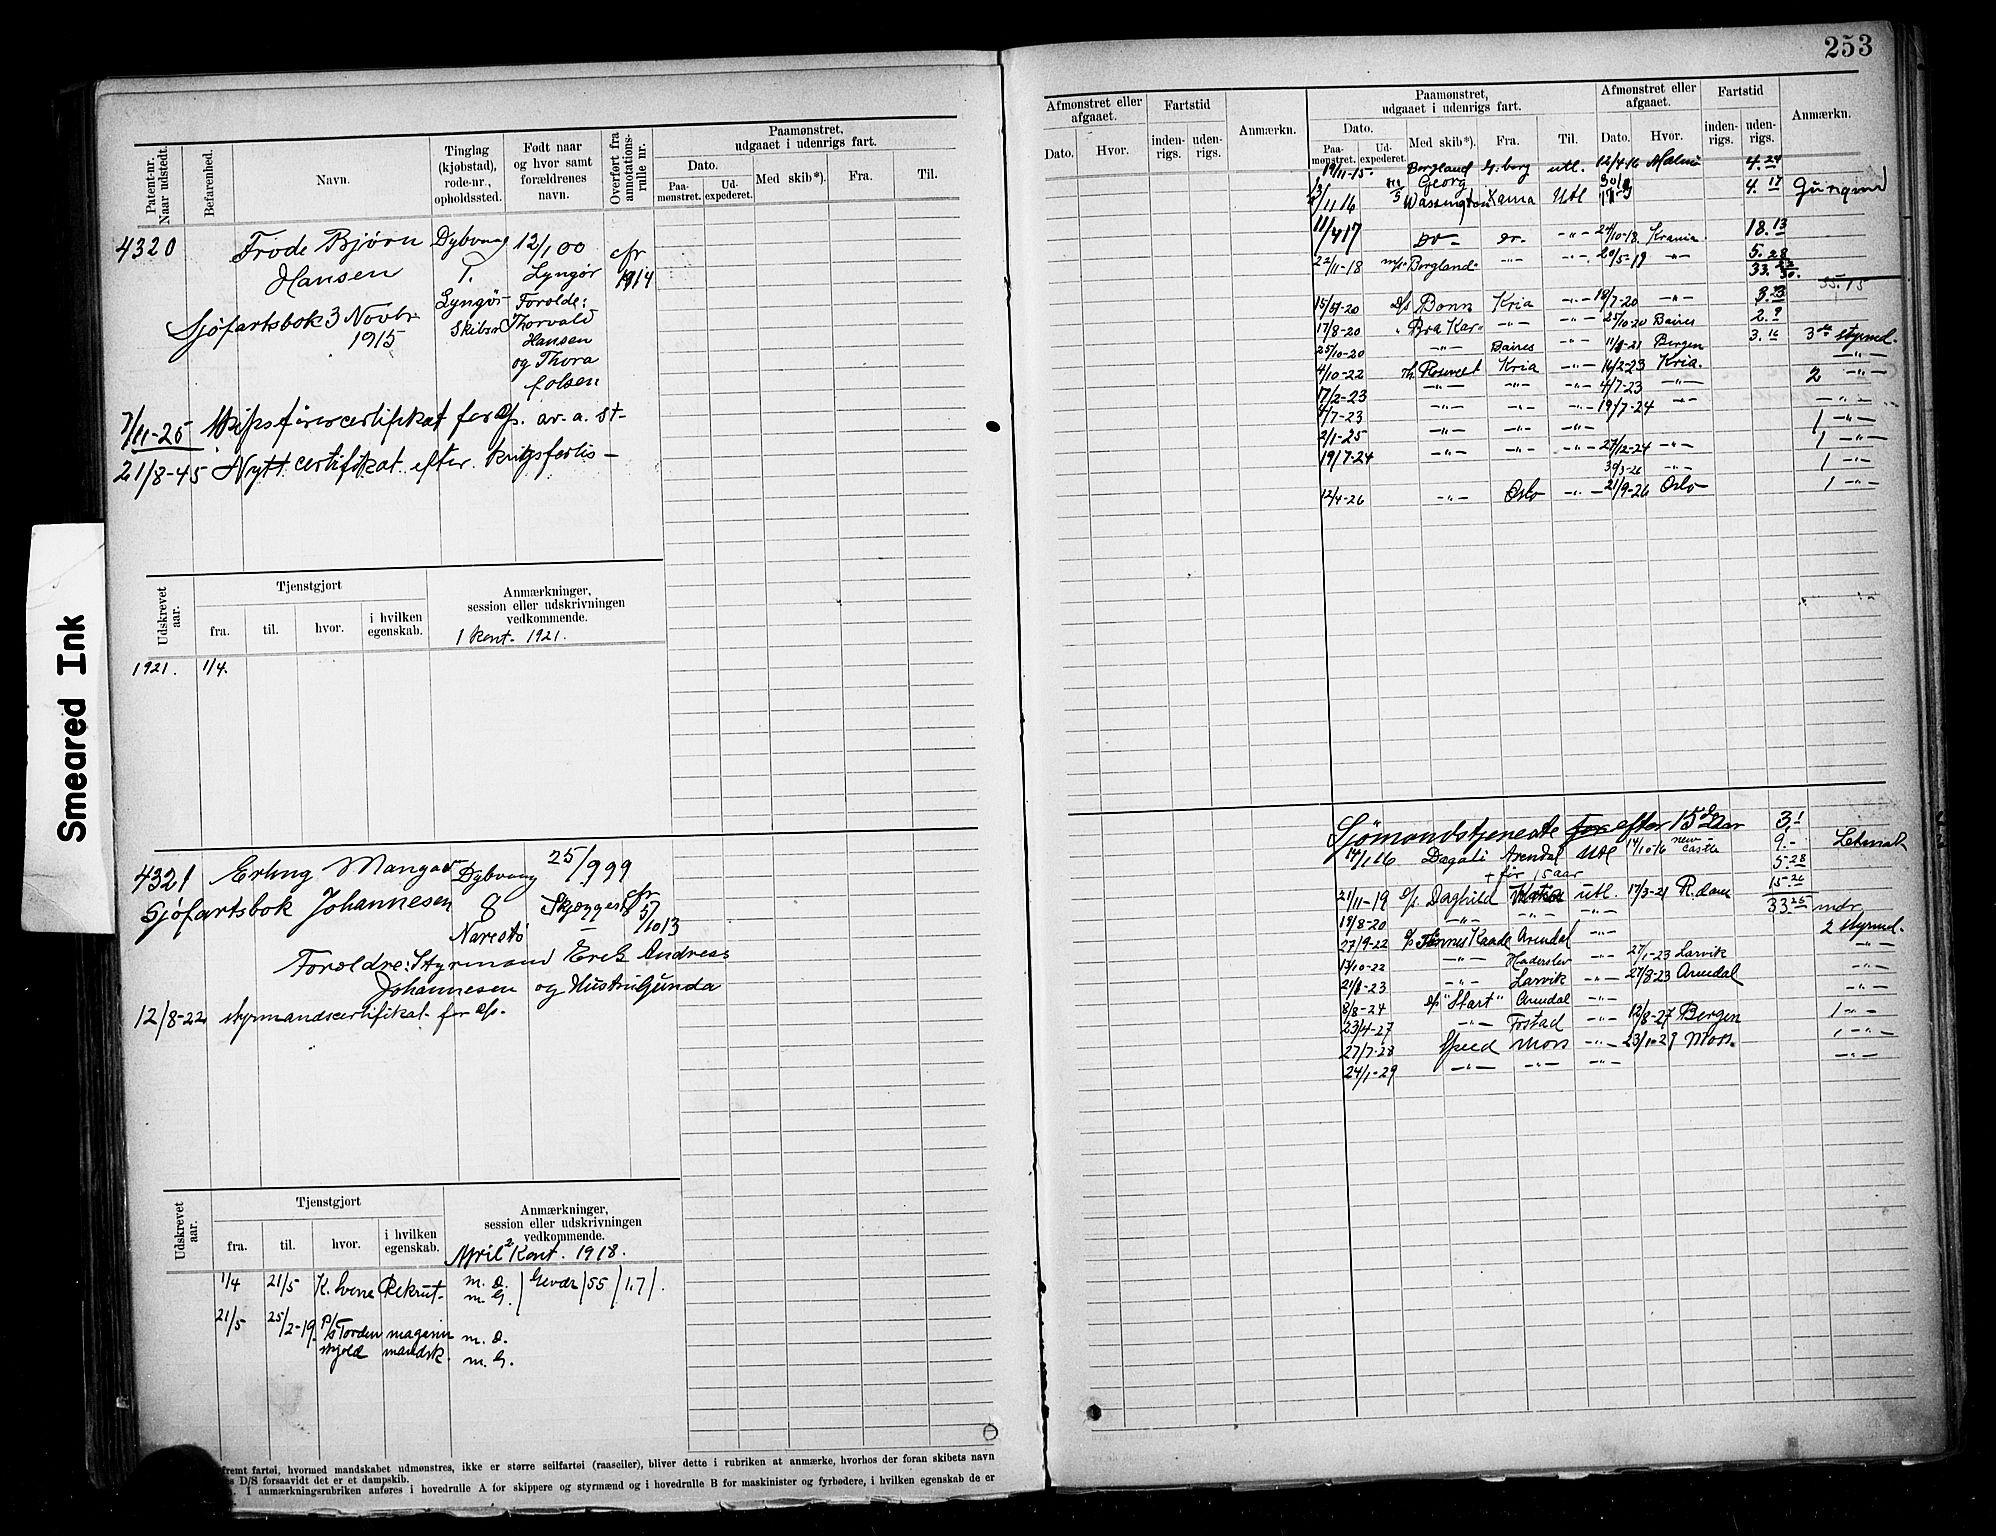 253
Smeared Ink
Patent-nr. Naar udstedt.
Befarenhed.
Navn.
Tinglag (kjøbstad), rode-nr., opholdssted.
Født naar og hvor samt forældrenes navn.
Overført fra annotations-rulle nr.
Paamønstret, udgaaet i udenrigs fart.
Dato.
Paa-mønstret.
Ud-expederet.
Med skib*).
Fra.
Til.
4320
Frode Bjørn
Hansen
Dybvaag
1.
Lyngør
Skibsr
12/1 00
Lyngør
Forælde:
Thorvald
Hansen
og Thora
f. Olsen
cfr
1914
Sjøfartsbok 3 Novbr
1915
7/11-25 Skipsførercertifikat for D/s. av. a. st-
21/8-45 Nytt certifikat efter krigsforlis -
Udskrevet aar.
Tjenstgjort
fra.
til.
hvor.
i hvilken egenskab.
Anmærkninger, session eller udskrivningen vedkommende.
1 Kont. 1921.
1921. 1/4.
4321
Erling Mangar
Johannesen
Dybvaag
8
Narestø
25/9 99
Skjeggest
cfr
5/10 13
Sjøfartsbok
Forældre: Styrmand Erik Andreas
Johannesen og Hustru Gunda
12/8-22 styrmandscertifikat for D/s.
Udskrevet aar.
Tjenstgjort
fra.
til.
hvor.
i hvilken egenskab.
Anmærkninger, session eller udskrivningen vedkommende.
April 2 Kont. 1918.
1/4 21/5 K. Svens Rekrut- m. D. m. G. / Gevær / 55 / 1.7 / .
21/5 25/2-19. P/s Torden skjold mandsk. m. D.
m. G.
fremt fartøi, hvormed mandskabet udmønstres, ikke er større seilfartøi (raaseiler), bliver dette i rubriken at anmærke, hvorhos der foran skibets navn
D/S forsaavidt det er et dampskib.
I anmærkningsrubriken anføres i hovedrulle A for skippere og styrmænd og i hovedrulle B for maskinister og fyrbødere, i hvilken egenskab de er
Afmønstret eller afgaaet.
Dato.
Hvor.
Fartstid
inden-rigs.
uden-rigs.
Anmærkn.
Paamønstret, udgaaet i udenrigs fart.
Dato.
Paa-mønstret.
Ud-expederet.
Med skib*).
Fra.
Til.
Afmønstret eller afgaaet.
Dato.
Hvor.
Fartstid
inden-rigs.
uden-rigs.
Anmærkn.
19/11-15. Borgland G.borg utl. 12/4-16 Malmø 4.29
Georg
11 16 Wassington Xania Utl 4. 17
11/4 17 Do- Do- -"- 24/10-18. Krania 18.13
22/11-18 M/s "Borgland" -"- -"- 20/5-19 -"- 5.28
33.
15/5-20 D/s Bonn Kria -"- 18/7-20 -"- 3.23
17/8-20 " Bra Kar" -"- -"- 25/10-20 Baires 2.9
25/10-20 -"- Baires -"- 11/1-21 Bergen 3.16 3de styrmd.
4/10-22 Th. Roosevelt Kria -"- 16/2-23 Kria. -"-
17/2-23 -"- -"- -"- 4/7-23 -"- 2 -"-
4/7-23 -"- -"- -"- 19/7-24 -"- -"-
2/1-25 -"- -"- -"- 1 -"-
19/7-24 -"- -"- -"- 27/12-24 -"- 1 -"-
30/3-26 -"- 1 -"-
12/4-26 -"- Oslo -"- 21/9-26 Oslo 1 -"-
Sjømandstjeneste for efter 15de Aar 3.1
14/1 16 Dagali Arendal Utl 14/10 16 new castle 9.-
+ før 15 aar 5.28
21/11-19 D/s. Daghild utl. 17/3-21 R.dam 15.26
18/8-20 -"- -"- -"- 33.25 mdr
27/9-22 D/s Finnes Kaade Arendal -"- 2 styrmd.
13/10-22 -"- Haderslev -"- 27/1-23 Larvik -"-
21/1-23 -"- Larvik -"- 27/8-23 Arendal -"-
8/8-24 D/s "Start" Arendal -"- -"-
23/4-27 -"- Fostad -"- 12/8-27 Bergen 1 -"-
27/7-28 Speed Moss -"- 23/1-29 Moss. -"-
24/1-29 -"- -"- -"- -"-